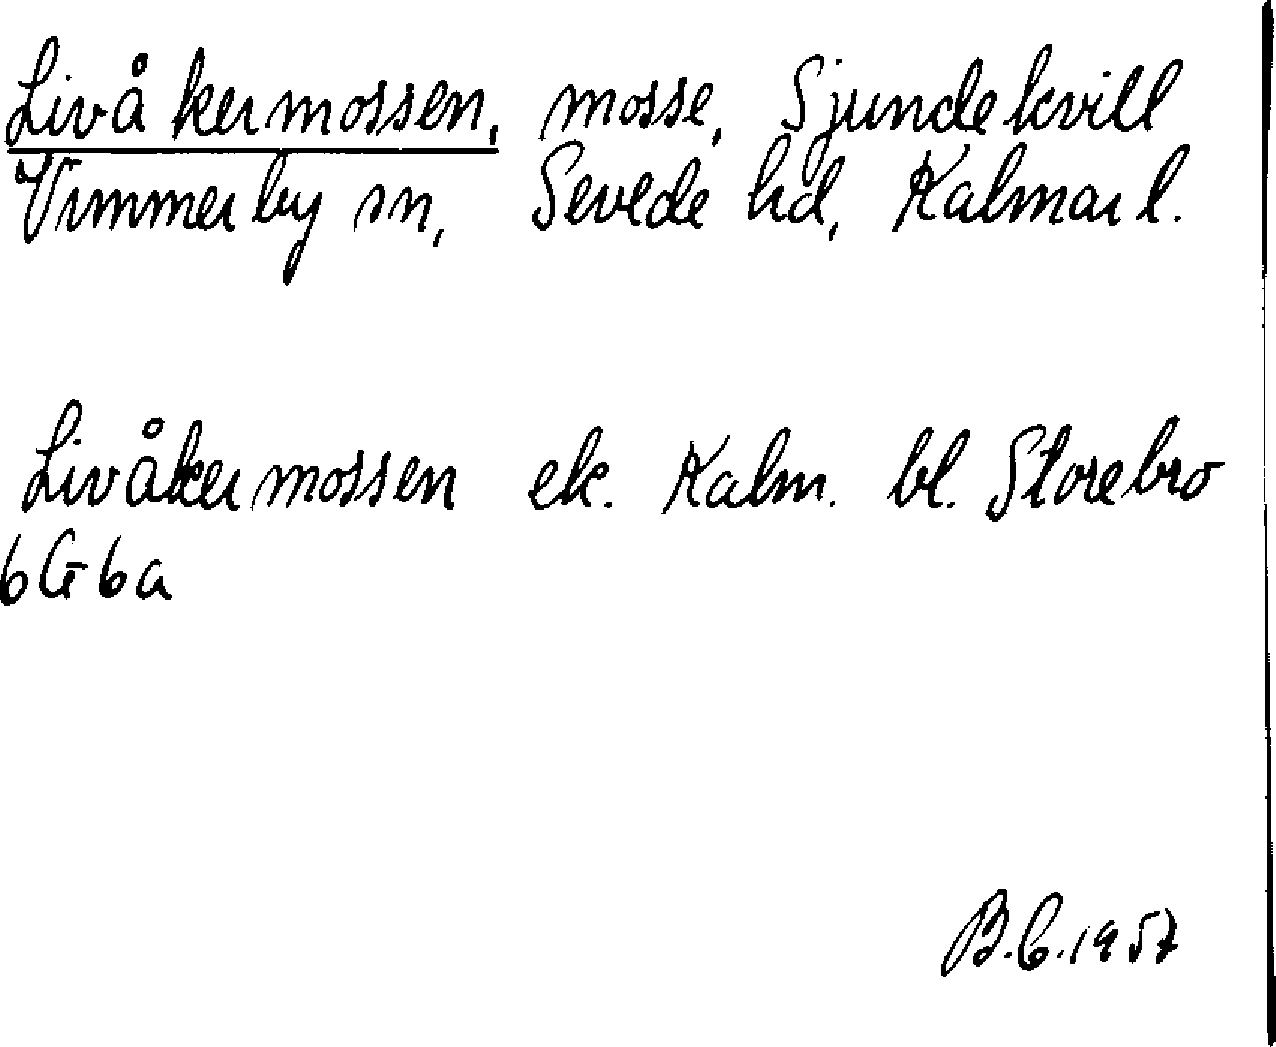 Livåkermossen, mosse, Sjundekvill
Vimmerby sn, Sevede hd, Kalmar l.
Livåkermossen ek. Kalm. bl. Storebro
6G6a
B.C.1957